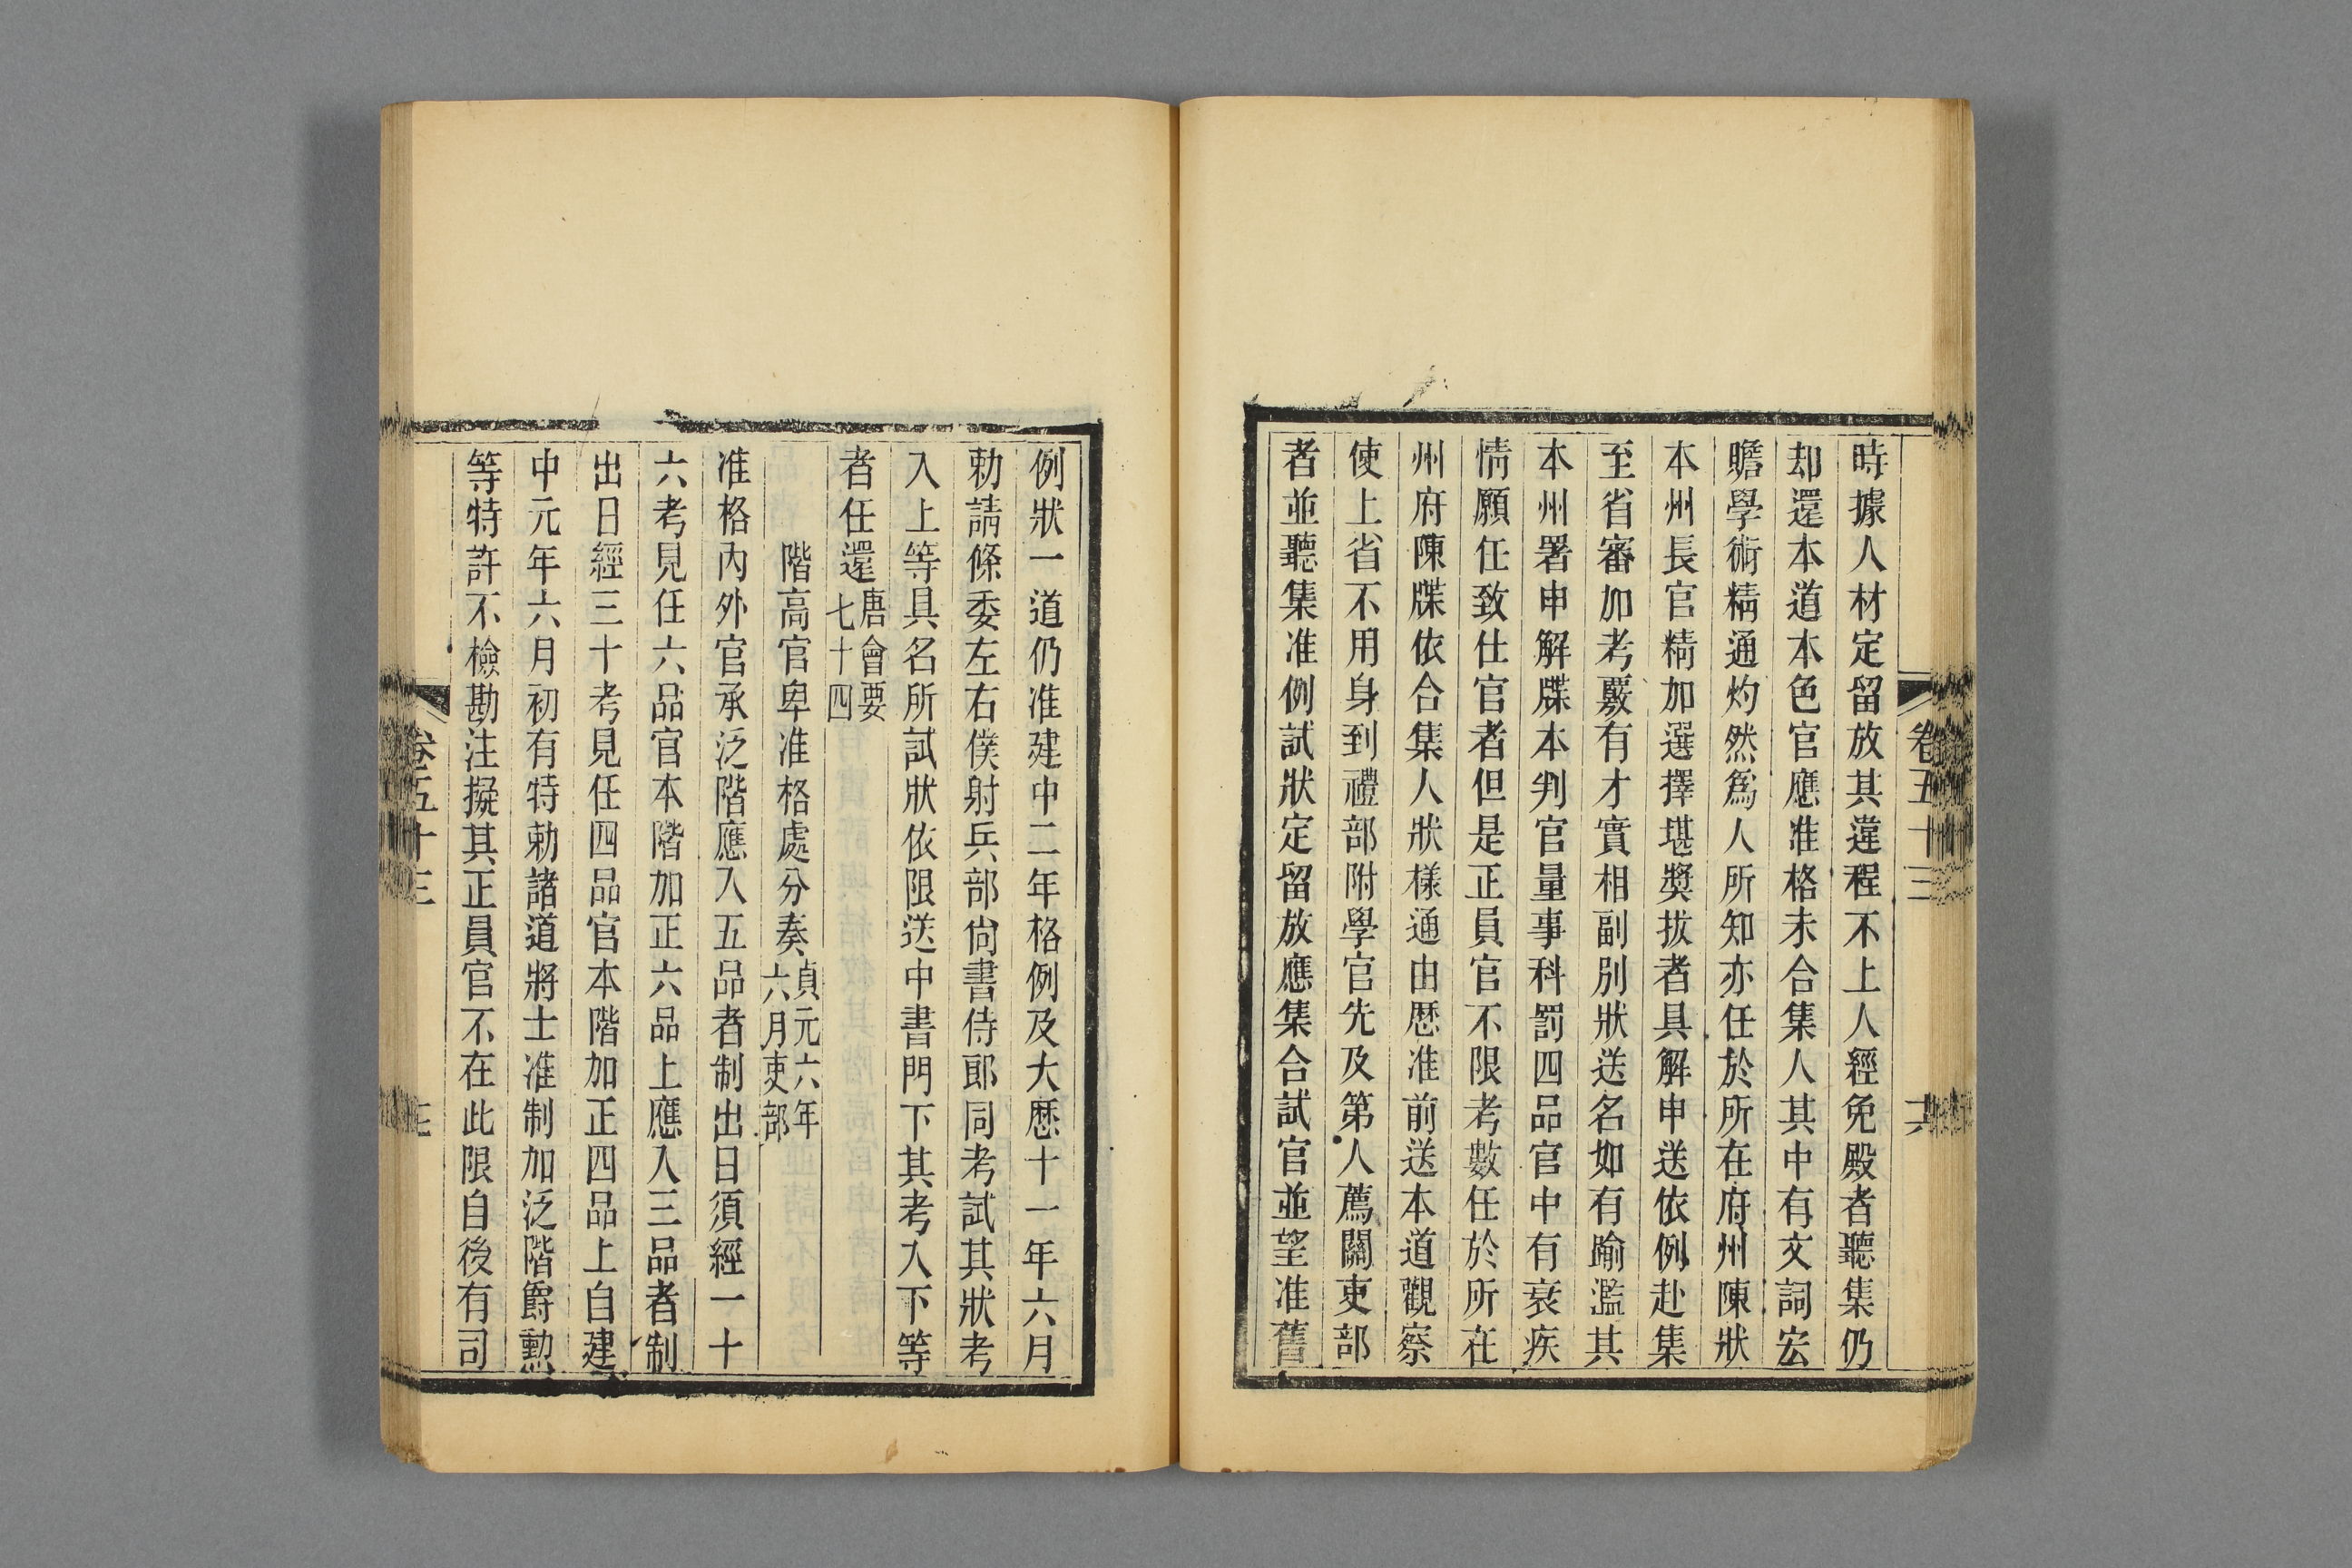 卷五十三
六
時據人材定留放其違程不上人經免殿者聽集仍
却還本道本色官應准格未合集人其中有文詞宏
贍學術精通灼然爲人所知亦任於所在府州陳狀
本州長官精加選擇堪獎拔者具解申送依例赴集
至省審加考覈有才實相副別狀送名如有踰濫其
本州署申解牒本判官量事科罰四品官中有衰疾
情願任致仕官者但是正員官不限考數任於所在
州府陳牒依合集人狀樣通由歷准前送本道觀察
使上省不用身到禮部附學官先及第人薦關吏部
者並聽集准例試狀定留放應集合試官並望准舊
例狀一道仍准建中二年格例及大歷十一年六月
勅請條委左右僕射兵部尙書侍郎同考試其狀考
入上等具名所試狀依限送中書門下其考入下等
者任還唐會要七十四
階高官卑准格處分奏貞元六年六月吏部
准格內外官承泛階應入五品者制出日須經一十
六考見任六品官本階加正六品上應入三品者制
出日經三十考見任四品官本階加正四品上自建
中元年六月初有特勅諸道將士准制加泛階爵勲
等特許不檢勘注擬其正員官不在此限自後有司
卷五十三